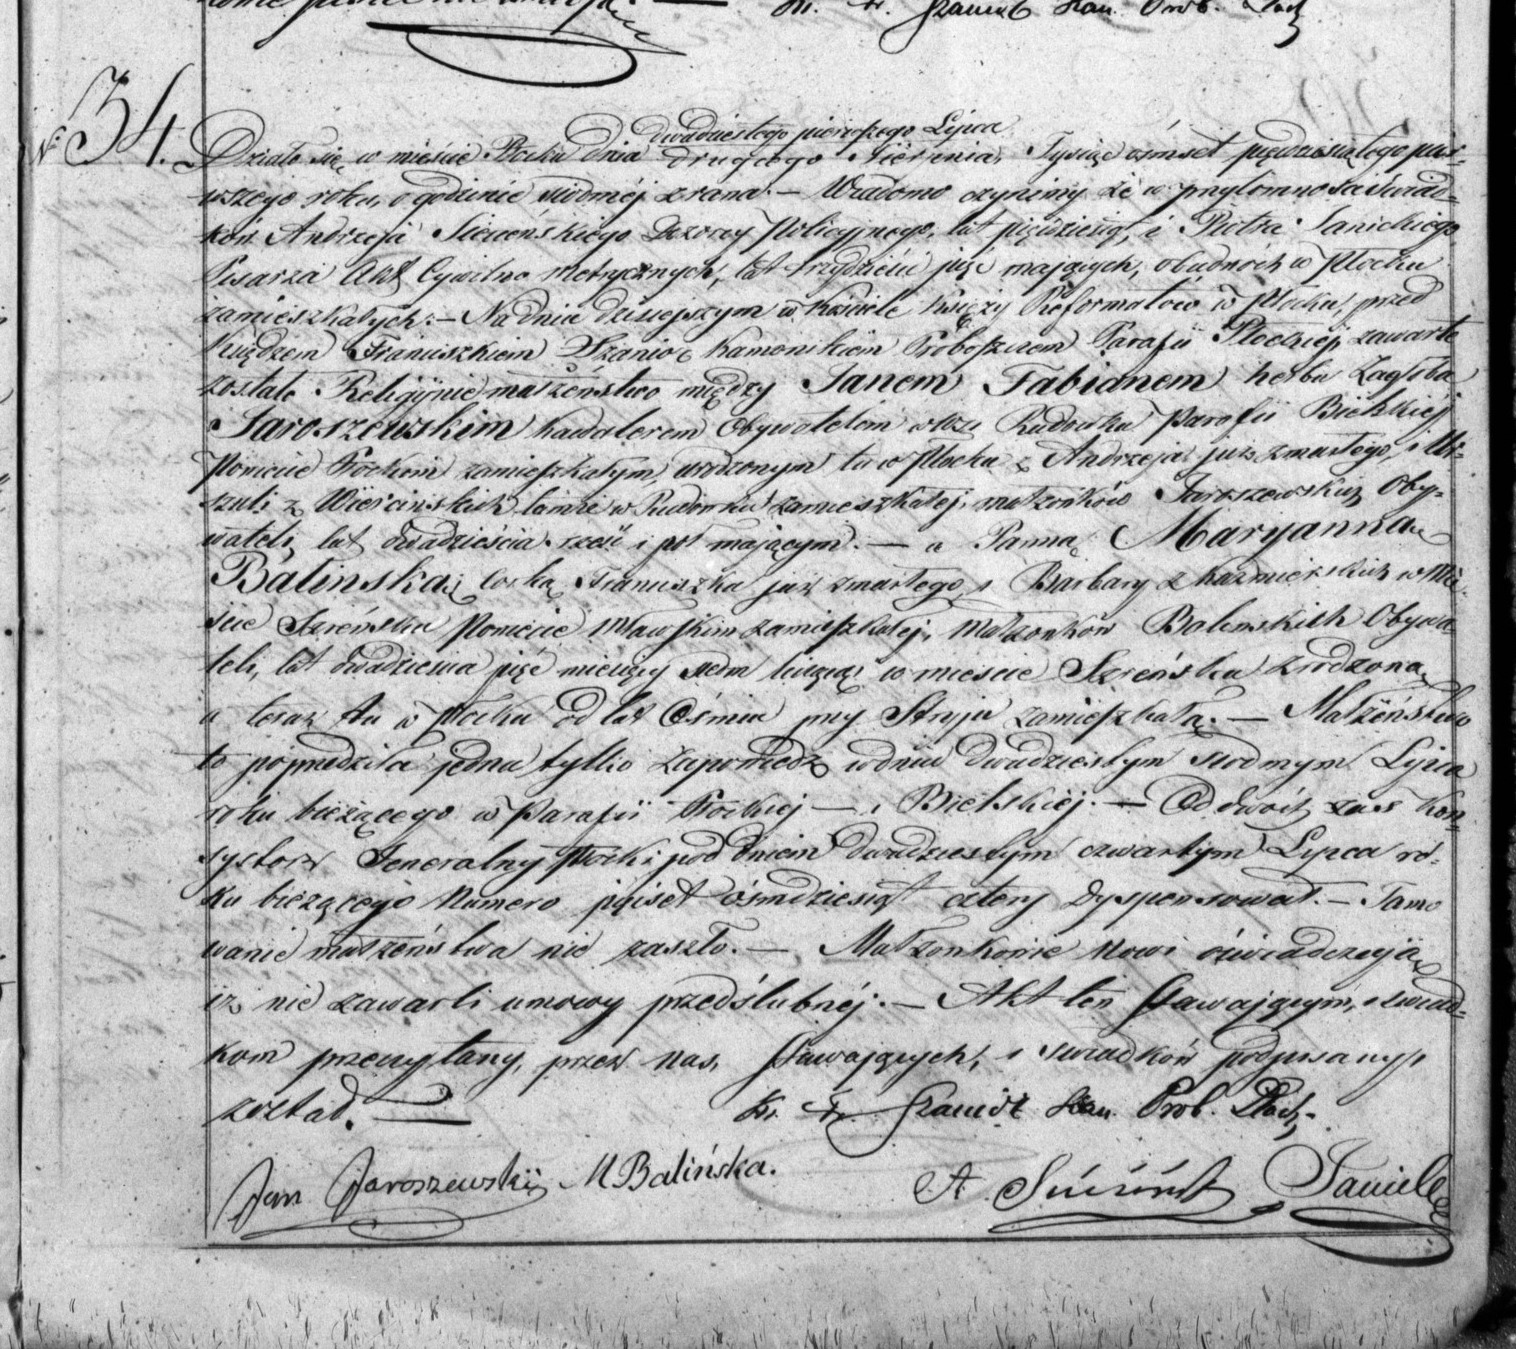 Kr. Fr. Szanior Kan. Prob. Płock.
№ 34.
dwudziestego pierwszego Lipca
Działo się w mieście Płocku dnia drugiego Sierpnia, Tysiąc ósmset pięćdziesiątego pier-
wszego roku, o godzinie siódméj z rana. — Wiadomo czynimy że w przytomności świad-
ków Andrzeja Dozorcy Policyjnego, lat pięćdziesiąt, i Piotra Janickiego
Pisarza Akt Cywilno metrycznych, lat trzydzieści pięć mających, obudwóch w Płocku
zamieszkałych. — Na dniu dzisiejszym w kościele Księży Reformatów w Płocku, przed
Księdzem Franciszkiem Szanior Kanonikiem Proboszczem Parafii Płockiej zawarte
zostało Religijnie małżeństwo między Janem Fabianem herbu Zagłoba
Jaroszewskim kawalerem Obywatelem w wsi Rudowku Parafii Bielskiéj
Powiecie Płockim zamieszkałym, urodzonym tu w Płocku z Andrzeja już zmarłego, i Ur-
szuli z Wiercińskich tamże w Rudowku zamieszkałej, małżonków Jaroszewskich Oby-
wateli, lat dwadzieścia sześć i pół mającym. — a Panną Maryanną
Balinską córką Franciszka już zmarłego, i Barbary z Kazmierskich w Mie-
ście Szreńsku Powiecie Mławskim zamieszkałej, Małżonków Balinskich Obywa-
teli, lat dwadzieścia pięć miesięcy siedm liczącą w mieście Szreńsku zrodzoną
a teraz tu w Płocku od lat Ośmiu przy Stryju zamieszkałą. — Małżeństwo
to poprzedziła jedna tylko zapowiedź w dniu dwudziestym siódmym Lipca
roku bieżącego w Parafii Płockiej — i Bielskiéj. — Od dwóch zaś Kon-
systorz Jeneralny Płocki pod dniem dwudziestym czwartym Lipca ro-
ku bieżącego Numero pięćset ósmdziesiąt cztery Dyspensował. — Tamo
wanie małżeństwa nie zaszło. — Małżonkowie nowi oświadczają
iż nie zawarli umowy przedślubnéj. — Akt ten stawającym, i świad-
kom przeczytany, przez nas, stawających, i świadków podpisany
został. — Kr. Fr. Szanior Kan. Prob. Płock.
Jan Jaroszewski M Balińska. A. Janicki